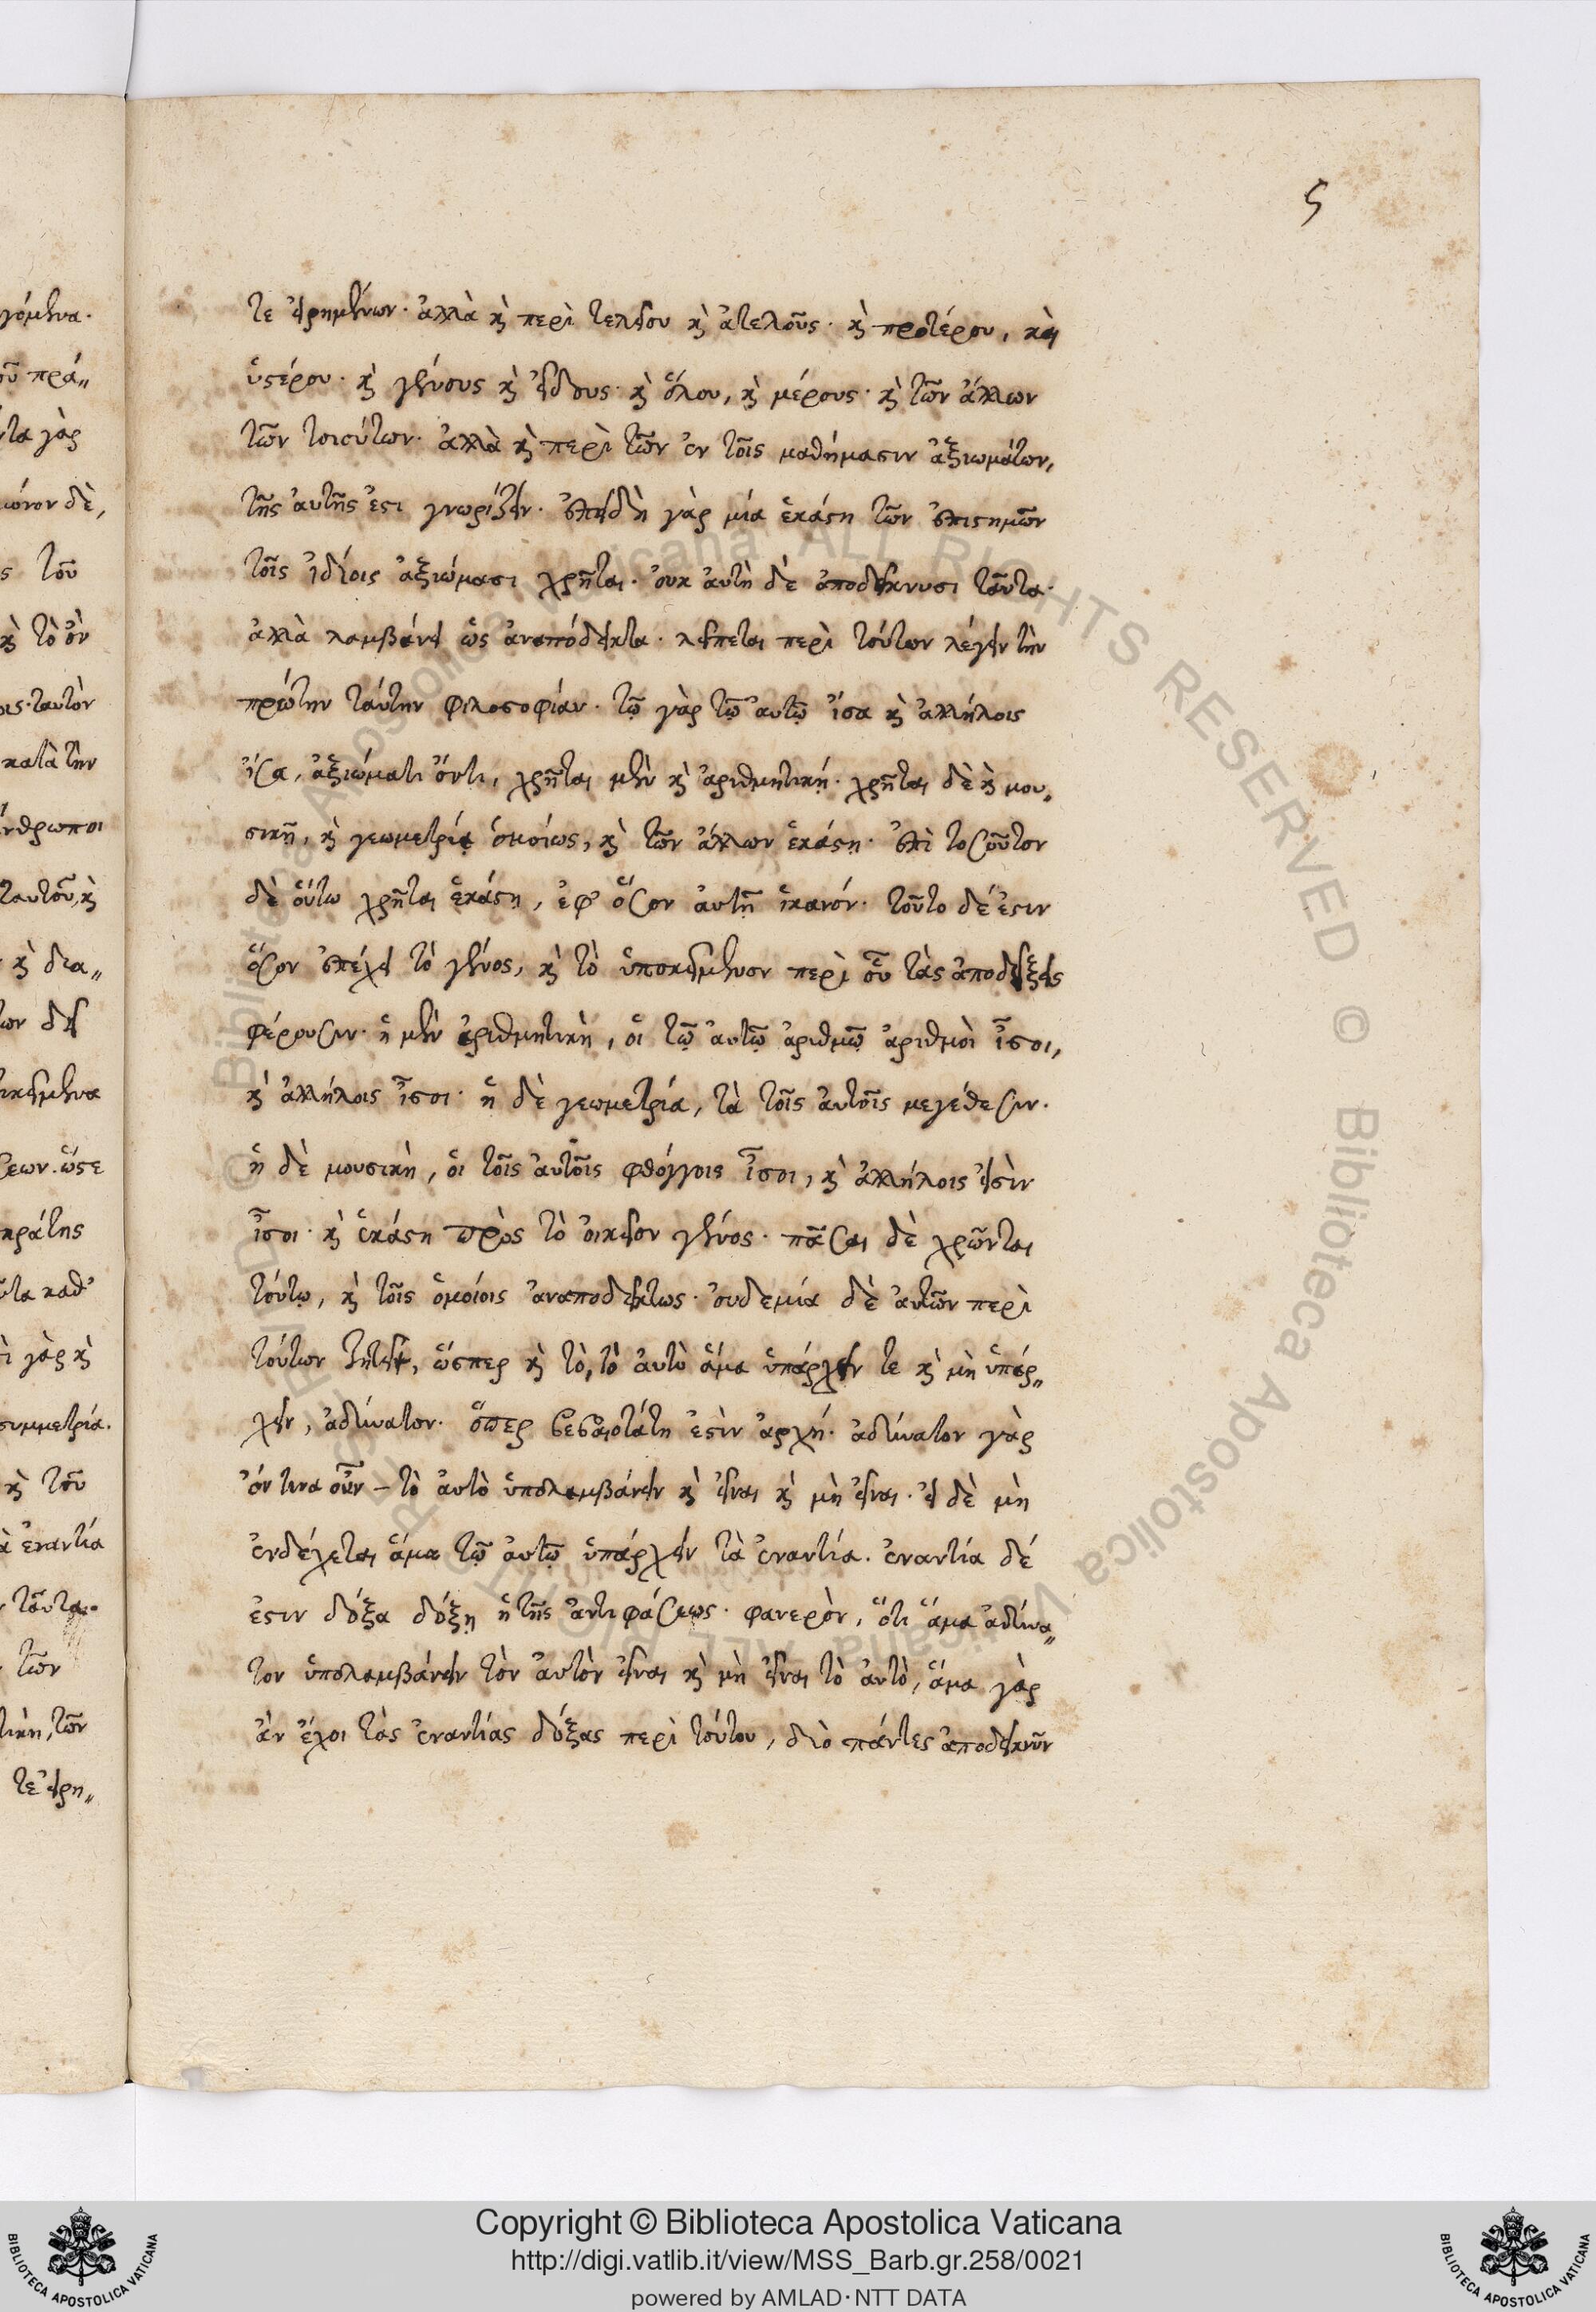 ς
τε εἰρημένων· ἀλλὰ κὶ περὶ τελείου κὶ ἀτελοῦς· κὶ προτέρου, καὶ
ὑστέρου· κὶ γένους κὶ εἴδους· κὶ ὅλου, κὶ μέρους· κὶ τῶν ἄλλων
τῶν τοιούτων· ἀλλὰ κὶ περὶ τῶν ἐν τοῖς μαθήμασιν ἀξιωμάτων,
τῆς αὐτῆς ἐστι γνωρίζειν· ἐπειδὴ γὰρ μία ἑκάστη τῶν ἐπιστημῶν
τοῖς ἰδίοις ἀξιώμασι χρῆται· οὐκ αὐτὴ δὲ ἀποδείκνυσι ταῦτα·
ἀλλὰ λαμβάνει ὡς ἀναπόδεικτα· λείπεται περὶ τούτων λέγειν τὴν
πρώτην ταύτην φιλοσοφίαν· τῷ γὰρ τῷ αὐτῷ ἴσα κὶ ἀλλήλοις
ἴσα, ἀξιώματι ὄντι, χρῆται μὲν κὶ ἀριθμητική· χρῆται δὲ κὶ μου„
σικῆ, κὶ γεωμετρία ὁμοίως, κὶ τῶν ἄλλων ἑκάστη· ἐπὶ τοσοῦτον
δὲ οὕτω χρῆται ἑκάστη, ἐφ' ὅσον αὐτῇ ἱκανόν· τοῦτο δέ ἐστιν
ὅσον ἐπέχει τὸ γένος, κὶ τὸ ὑποκείμενον περὶ οὗ τὰς ἀποδείξεις
φέρουσιν· ἡ μὲν ἀριθμητικὴ, οἱ τῷ αὐτῷ ἀριθμῷ ἀριθμοὶ ἶσοι,
κὶ ἀλλήλοις ἶσοι· ἡ δὲ γεωμετρία, τὰ τοῖς αὐτοῖς μεγέθεσιν·
ἡ δὲ μουσικὴ, οἱ τοῖς αὐτοῖς φθόγγοις ἶσοι, κὶ ἀλλήλοις εἰσὶν
ἶσοι· κὶ ἑκάστη πρὸς τὸ οἰκεῖον γένος· πᾶσαι δὲ χρῶνται
τούτῳ, κὶ τοῖς ὁμοίοις ἀναποδείκτως· οὐδεμία δὲ αὐτῶν περὶ
τούτων ζητεῖ, ὥσπερ κὶ τὸ, τὸ αὐτὸ ἅμα ὑπάρχειν τε κὶ μὴ ὑπάρ„
χειν, ἀδύνατον· ὅπερ βεβαιοτάτη ἐστὶν ἀρχή· ἀδύνατον γὰρ
ὁν τινα οὖν – τὸ αὐτὸ ὑπολαμβάνειν κὶ εἶναι κὶ μὴ εἶναι· εἰ δὲ μὴ
ἐνδέχεται ἅμα τῷ αὐτῷ ὑπάρχειν τὰ ἐναντία· ἐναντία δέ
ἐστιν δόξα δόξῃ ἡ τῆς ἀντιφάσεως· φανερὸν, ὅτι ἅμα ἀδύνα„
τον ὑπολαμβάνειν τὸν αὐτὸν εἶναι κὶ μὴ εἶναι τὸ αὐτὸ, ἅμα γὰρ
ἂν ἔχοι τὰς ἐναντίας δόξας περὶ τούτου, διὸ πάντες ἀποδεικνῦν
Copyright © Biblioteca Apostolica Vaticana
http://digi.vatlib.it/view/MSS_Barb.gr.258/0021
powered by AMLAD·NTT DATA